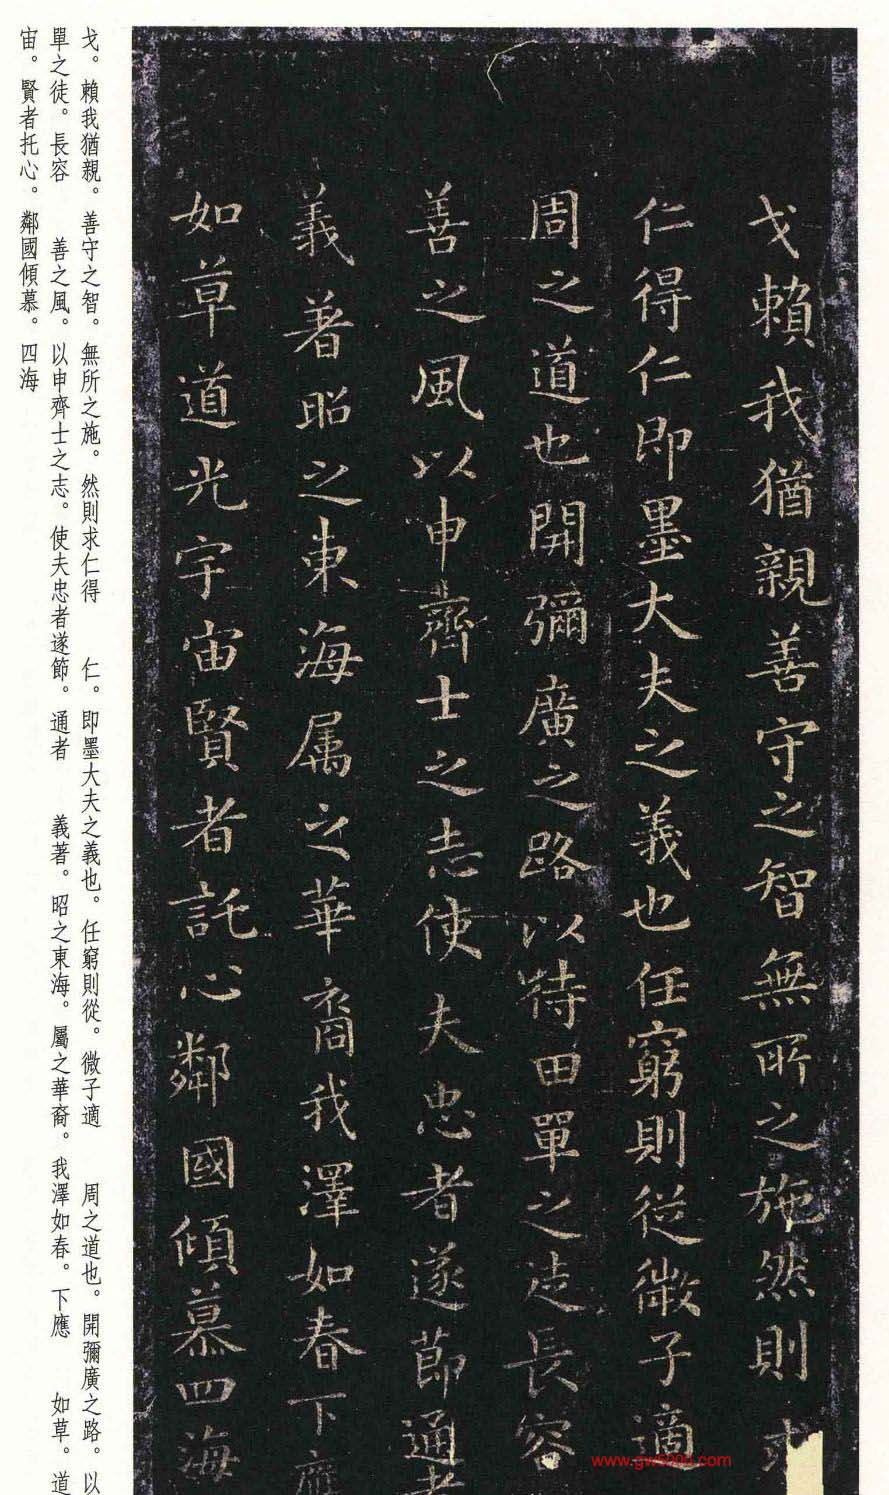 戈賴我猶親善守之智無所之施然則求
仁得仁即墨大夫之義也任窮則從微子適
周之道也開彌廣之路以待田單之徒長容
善之風以申齊士之志使夫忠者遂節通者
義著昭之東海属之華裔我澤如春下應
如草道光宇宙賢者託心鄰國傾慕四海
戈。賴我猶親。善守之智。無所之施。然則求仁得 仁。即墨大夫之義也。任窮則從。微子適 周之道也。開彌廣之路。以
單之徒。長容 善之風。以申齊士之志。使夫忠者遂節。通者 義著。昭之東海。屬之華裔。我澤如春。下應 如草。道
宙。賢者托心。鄰國傾慕。四海